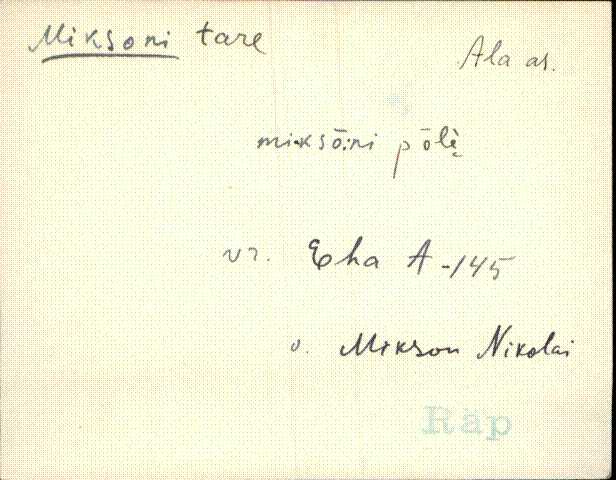 Miksoni tare
Ala as.
miksō:ni pōlè
vr. Eha A-145
o. Mikson Nikolai
Räp